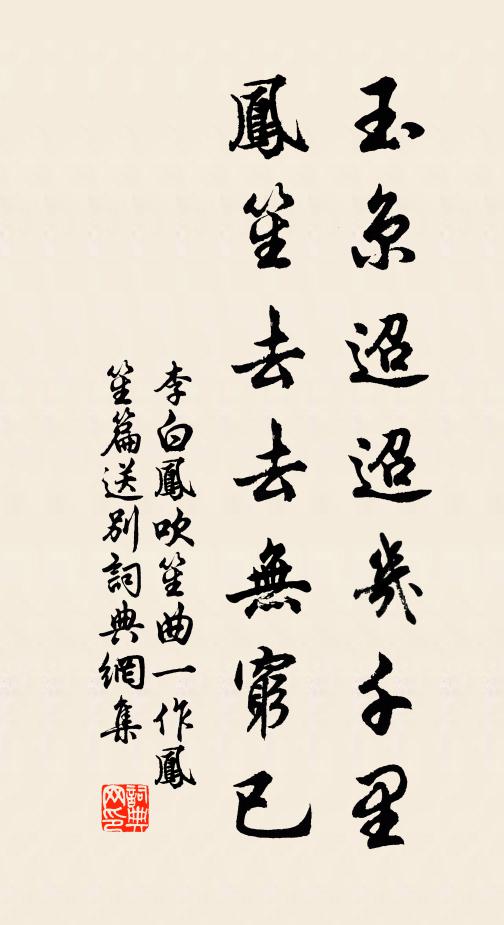 玉京迢迢幾千里
鳳笙去去無窮已
李白鳳吹笙曲一作鳳
笙篇送別詞典網集
詞典
网印